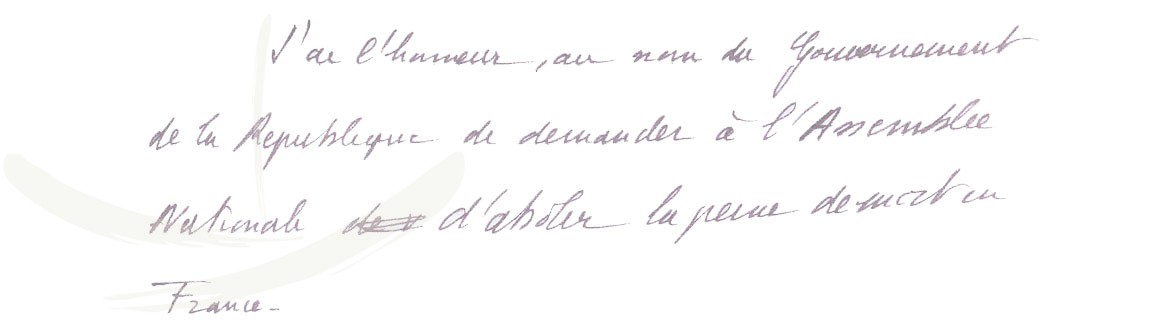 J'ai l'honneur, au nom du Gouvernement
de la République de demander à l'Assemblée
Nationale d'abolir la peine de mort en
France -